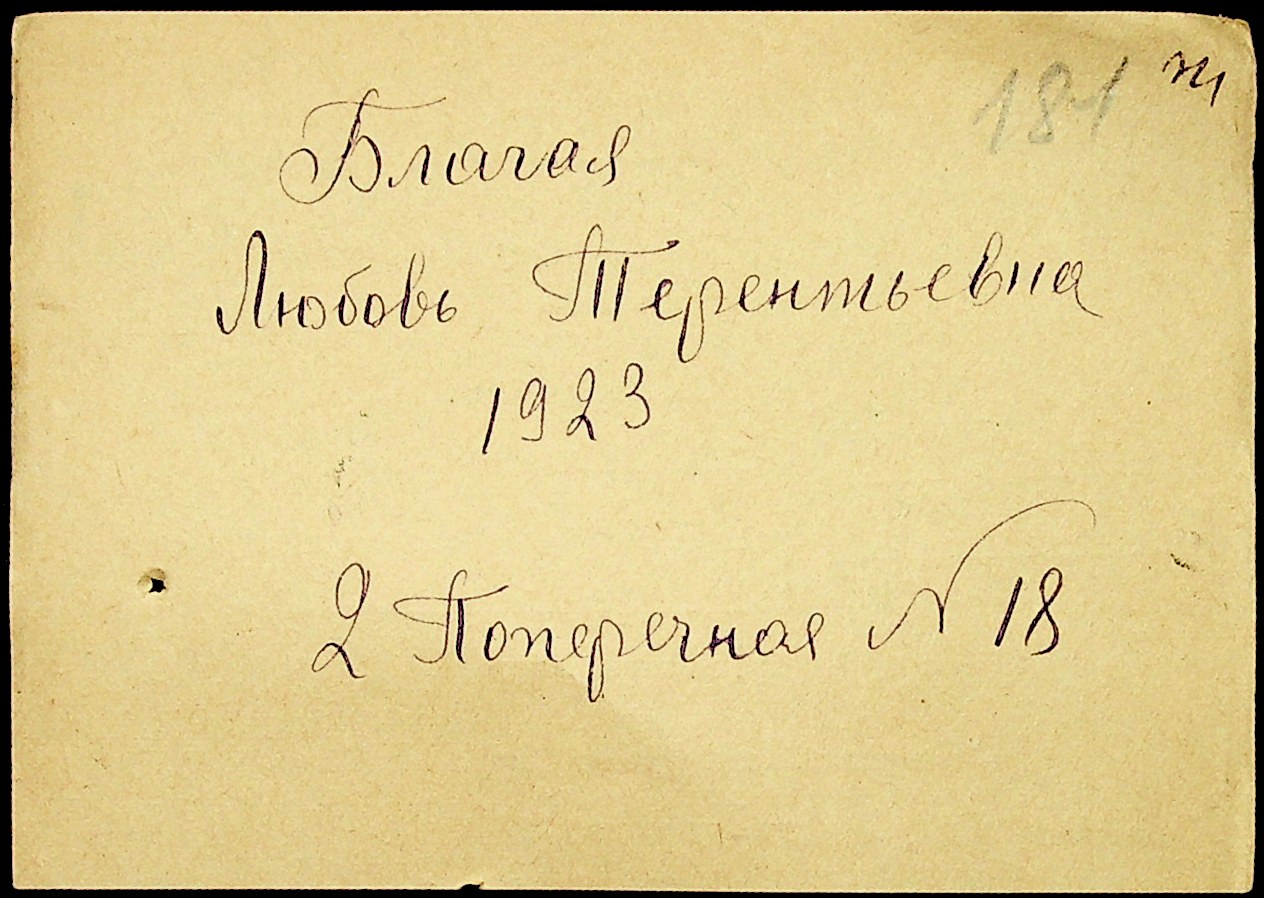 181
Благая
Любовь Терентьевна
1923
2 Поперечная № 18